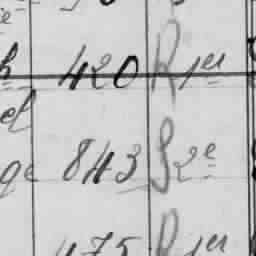 h 420 R 1er
et
ge 843 S 2e
475 R 1er